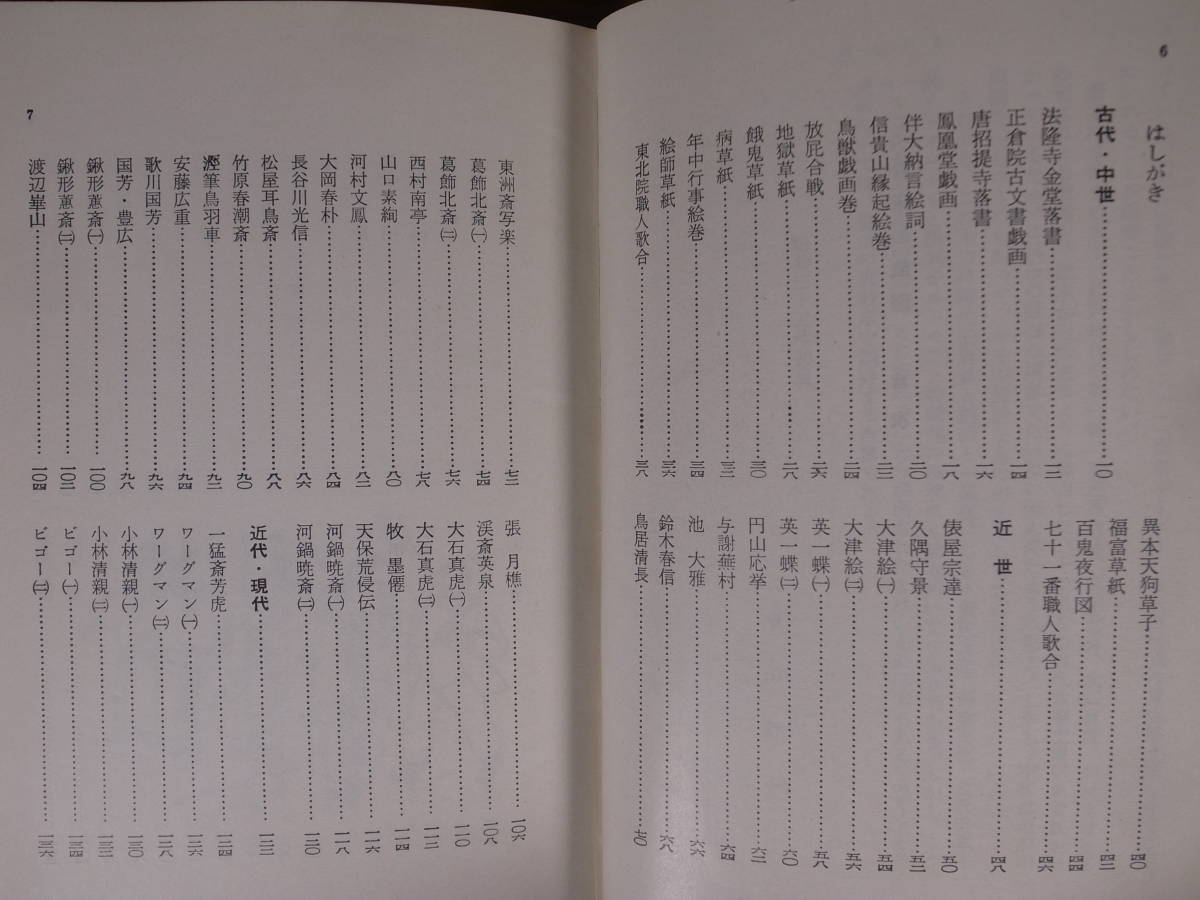 6
はしがき
古代・中世……一〇
法隆寺金堂落書……一二
正倉院古文書戯画……一四
唐招提寺落書……一六
鳳凰堂戯画……一八
伴大納言絵詞……二〇
信貴山縁起絵巻……二二
鳥獣戯画巻……二四
放屁合戦……二六
地獄草紙……二八
餓鬼草紙……三〇
病草紙……三二
年中行事絵巻……三四
絵師草紙……三六
東北院職人歌合……三八
異本天狗草子……四〇
福富草紙……四二
百鬼夜行図……四四
七十一番職人歌合……四六
近世……四八
俵屋宗達……五〇
久隅守景……五二
大津絵(一)……五四
大津絵(二)……五六
英一蝶(一)……五八
英一蝶(二)……六〇
円山応挙……六二
与謝蕪村……六四
池大雅……六六
鈴木春信……六八
鳥居清長……七〇
7
東洲斎写楽……七二
葛飾北斎(一)……七四
葛飾北斎(二)……七六
西村南亭……七八
山口素絢……八〇
河村文鳳……八二
大岡春朴……八四
長谷川光信……八六
松屋耳鳥斎……八八
竹原春潮斎……九〇
遯筆鳥羽車……九二
安藤広重……九四
歌川国芳……九六
国芳・豊広……九八
鍬形蕙斎(一)……一〇〇
鍬形蕙斎(二)……一〇二
渡辺崋山……一〇四
張月樵……一〇六
渓斎英泉……一〇八
大石真虎(一)……一一〇
大石真虎(二)……一一二
牧墨僊……一一四
天保荒侵伝……一一六
河鍋暁斎(一)……一一八
河鍋暁斎(二)……一二〇
近代・現代……一二二
一猛斎芳虎……一二四
ワーグマン(一)……一二六
ワーグマン(二)……一二八
小林清親(一)……一三〇
小林清親(二)……一三二
ビゴー(一)……一三四
ビゴー(二)……一三六